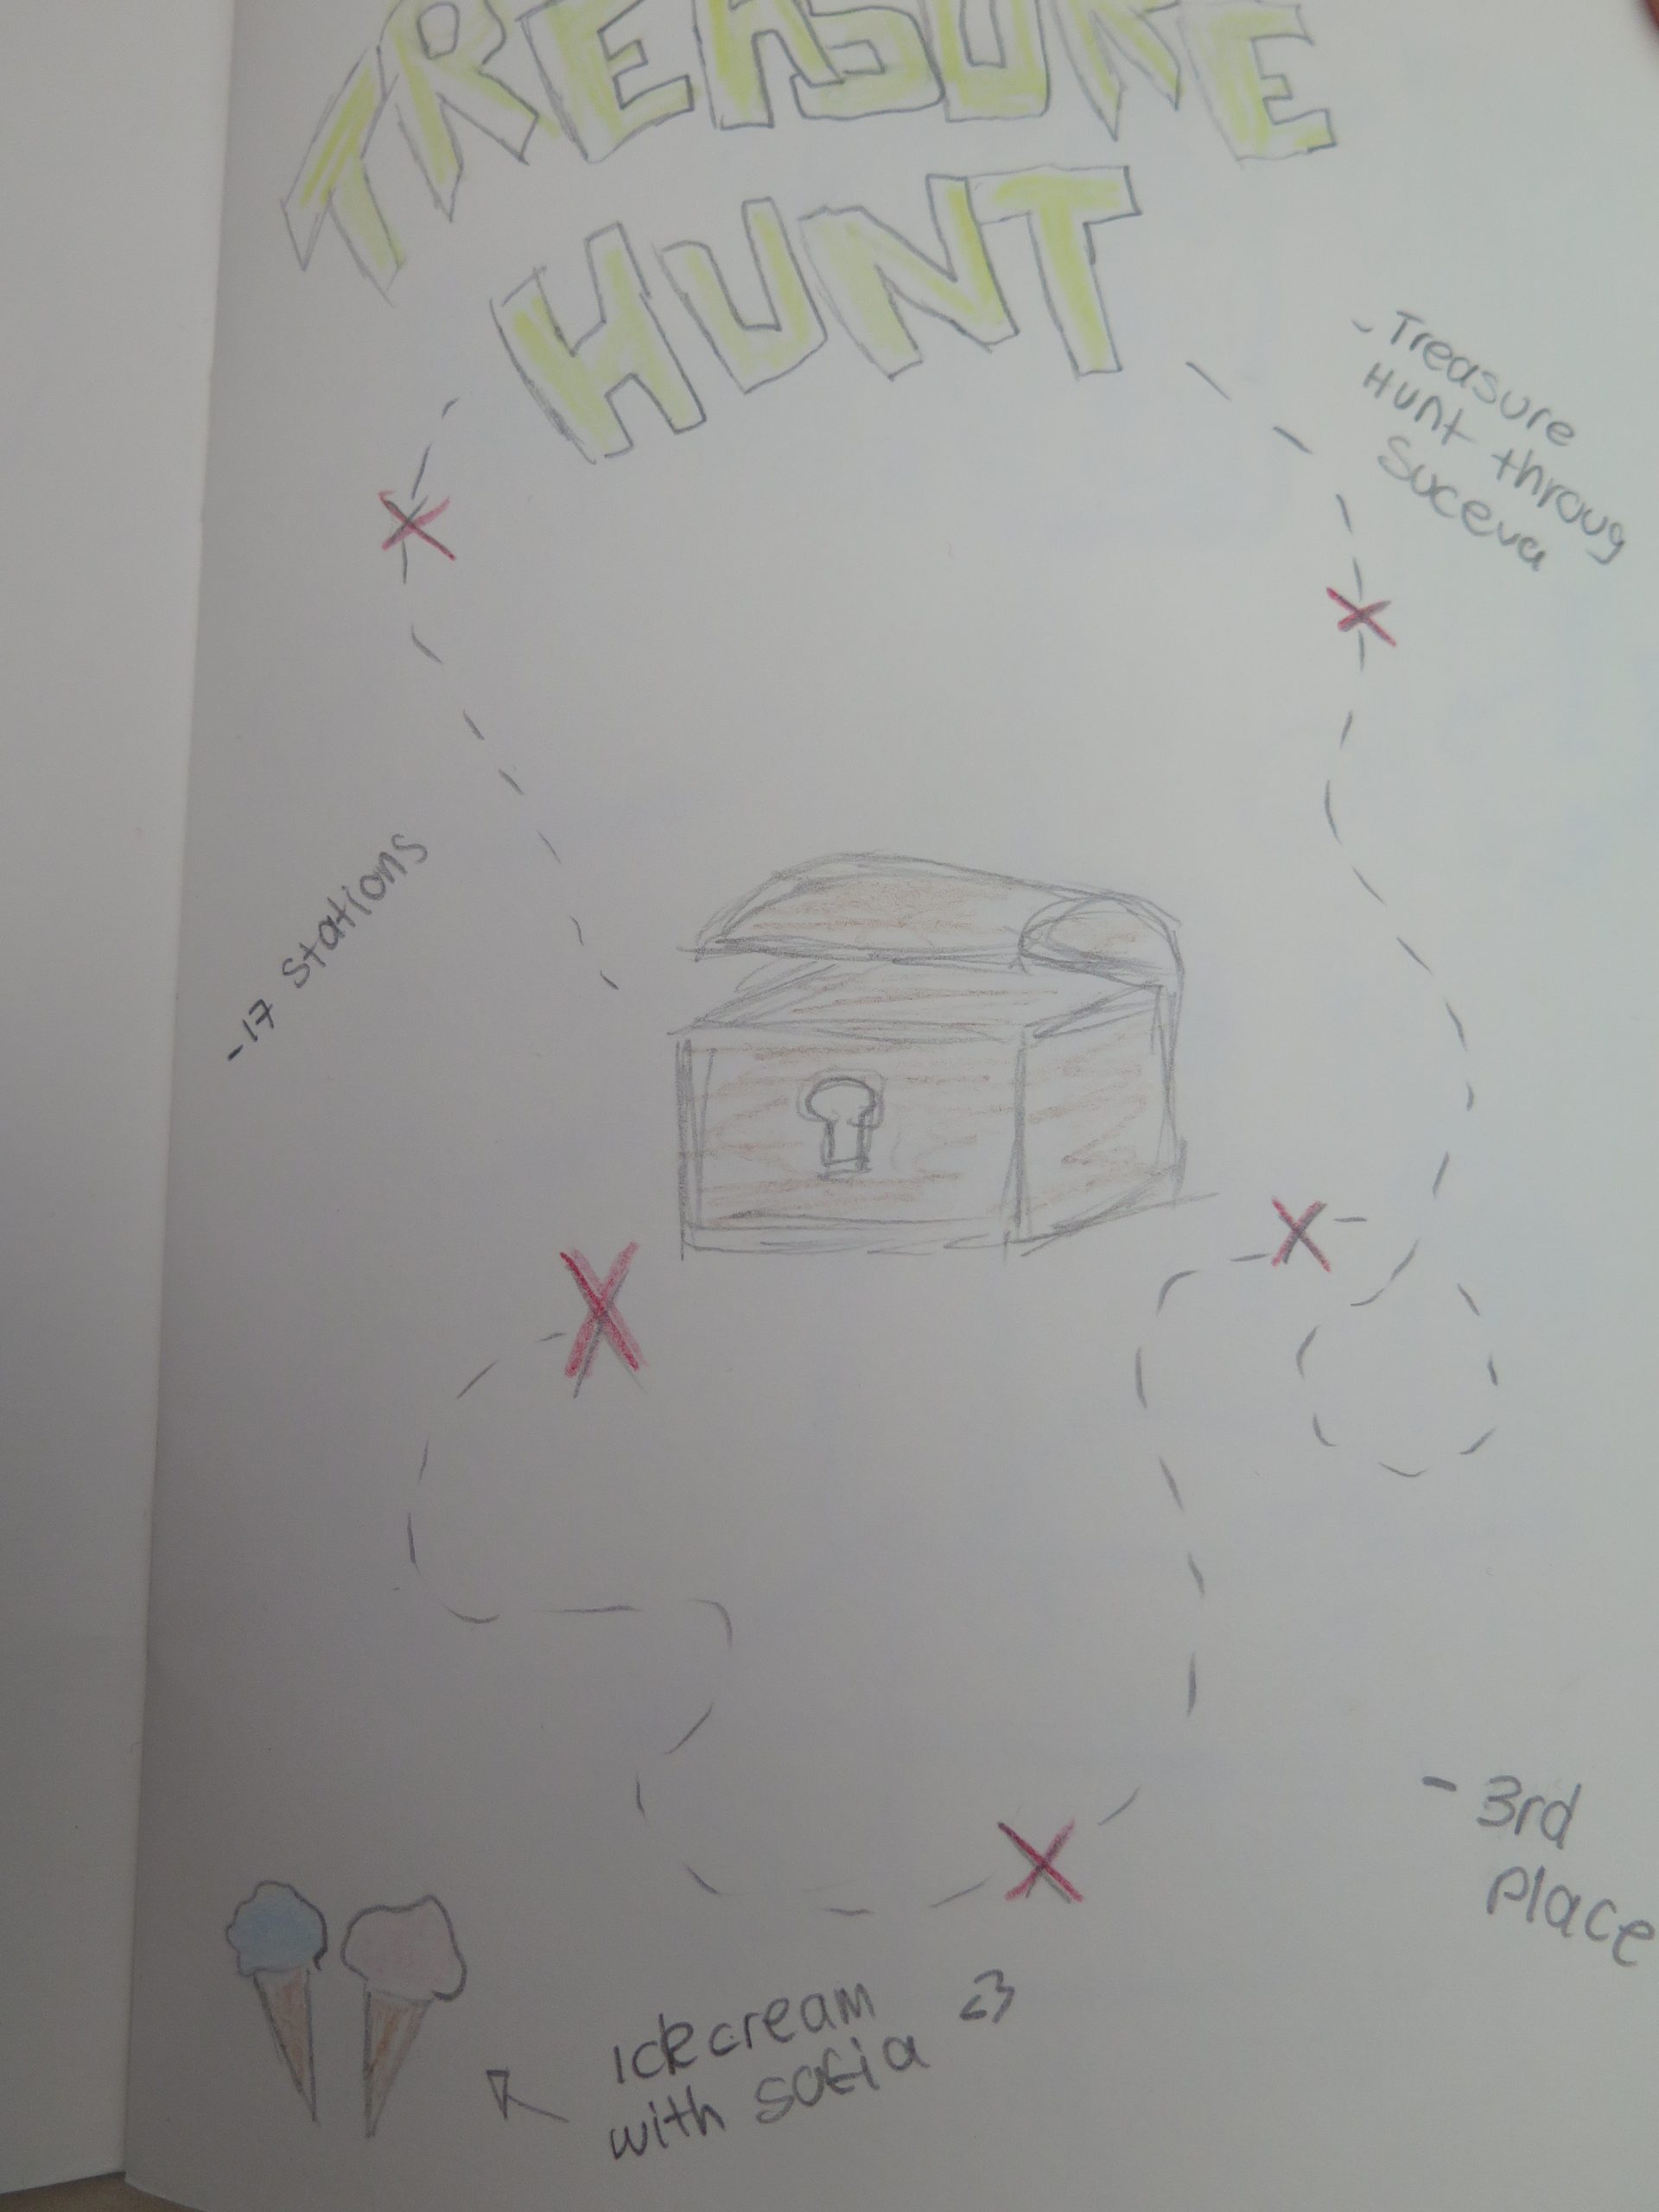 TREASURE
HUNT
- Treasure
Hunt throug
Suceva
- 17 Stations
- 3rd
Place
Icecream
with sofia <3